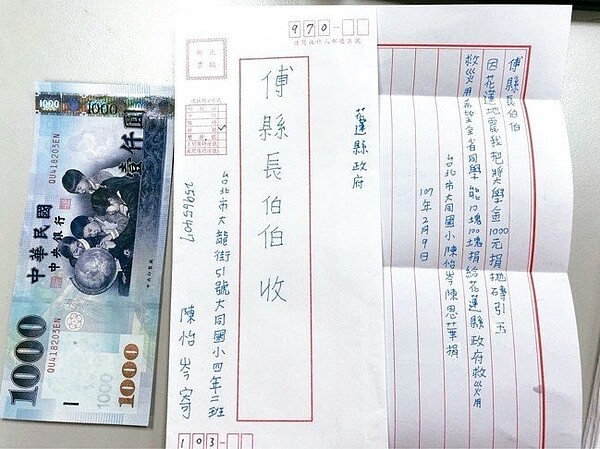 1000
1000
壹仟圓
QU418203EN
中華民國
中央銀行
QU418203EN
1000
1000
1000
970
花蓮縣政府
傅縣長伯伯 收
台北市大龍街51號大同國小四年二班
陳怡岑寄
25965407
103
傅縣長伯伯
因花蓮地震我把獎學金1000元捐拋磚引玉
救災用希望全省同學能10塊100塊捐給花蓮縣政府救災用
台北市大同國小陳怡岑陳恩華捐
107年2月9日